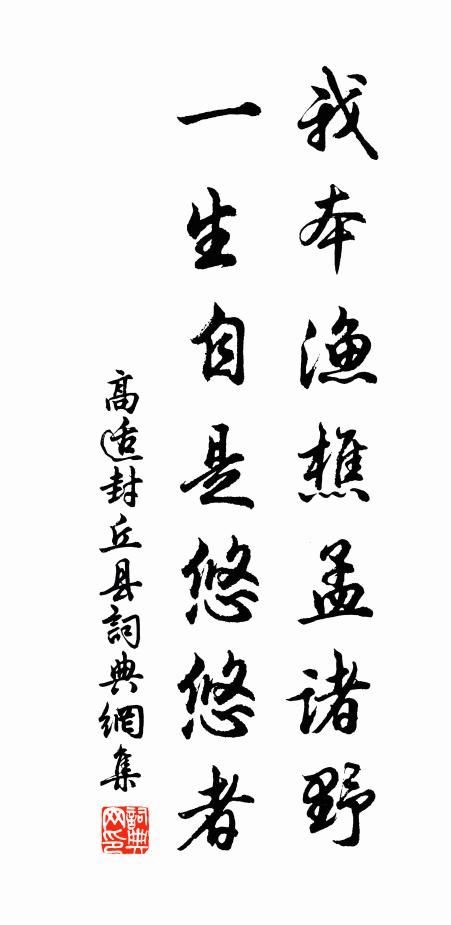 我本漁樵孟诸野
一生自是悠悠者
高适封丘县詞典網集
詞典网印